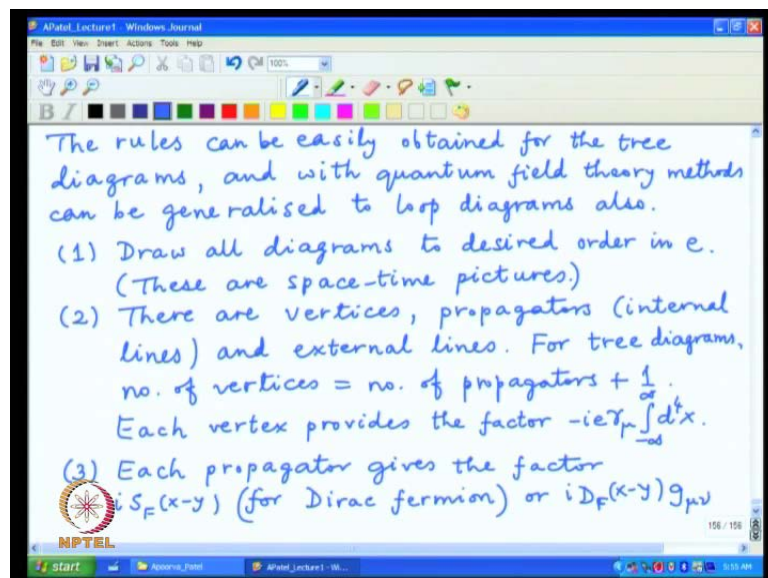 APatel_Lecture1 - Windows Journal
File Edit View Insert Actions Tools Help
100%
B I
The rules can be easily obtained for the tree
diagrams, and with quantum field theory methods
can be generalised to loop diagrams also.
(1) Draw all diagrams to desired order in e.
(These are space-time pictures.)
(2) There are vertices, propagators (internal
lines) and external lines. For tree diagrams,
no. of vertices = no. of propagators + 1.
Each vertex provides the factor -ieγ_μ ∫_{-∞}^{∞} d⁴x.
(3) Each propagator gives the factor
i S_F(x-y) (for Dirac fermion) or i D_F(x-y) g_{μν}
156 / 156
NPTEL
start Apoorva_Patel APatel_Lecture1 - Wi... 5:55 AM